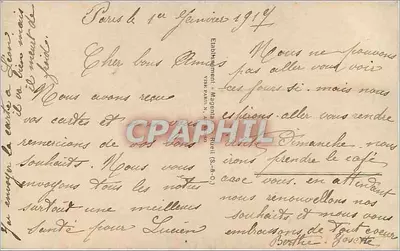 Paris le 1er Janvier 1917
Cher bons Amis
Nous avons reçu
vos cartes et vous
remercions de vos bons
souhaits. Nous vous
envoyons tous les notres
surtout une meilleure
santé pour Lucien
Nous ne pouvons
pas aller vous voir
ces jours si. mais nous
espérons aller vous rendre
visite Dimanche. nous
irons prendre le café
avec vous. en attendant
nous renouvellons nos
souhaits et nous vous
embrassons de tout coeur
Berthe
envoyer la carte à Léon
il va bien mais
il meurt de
CPAPHIL